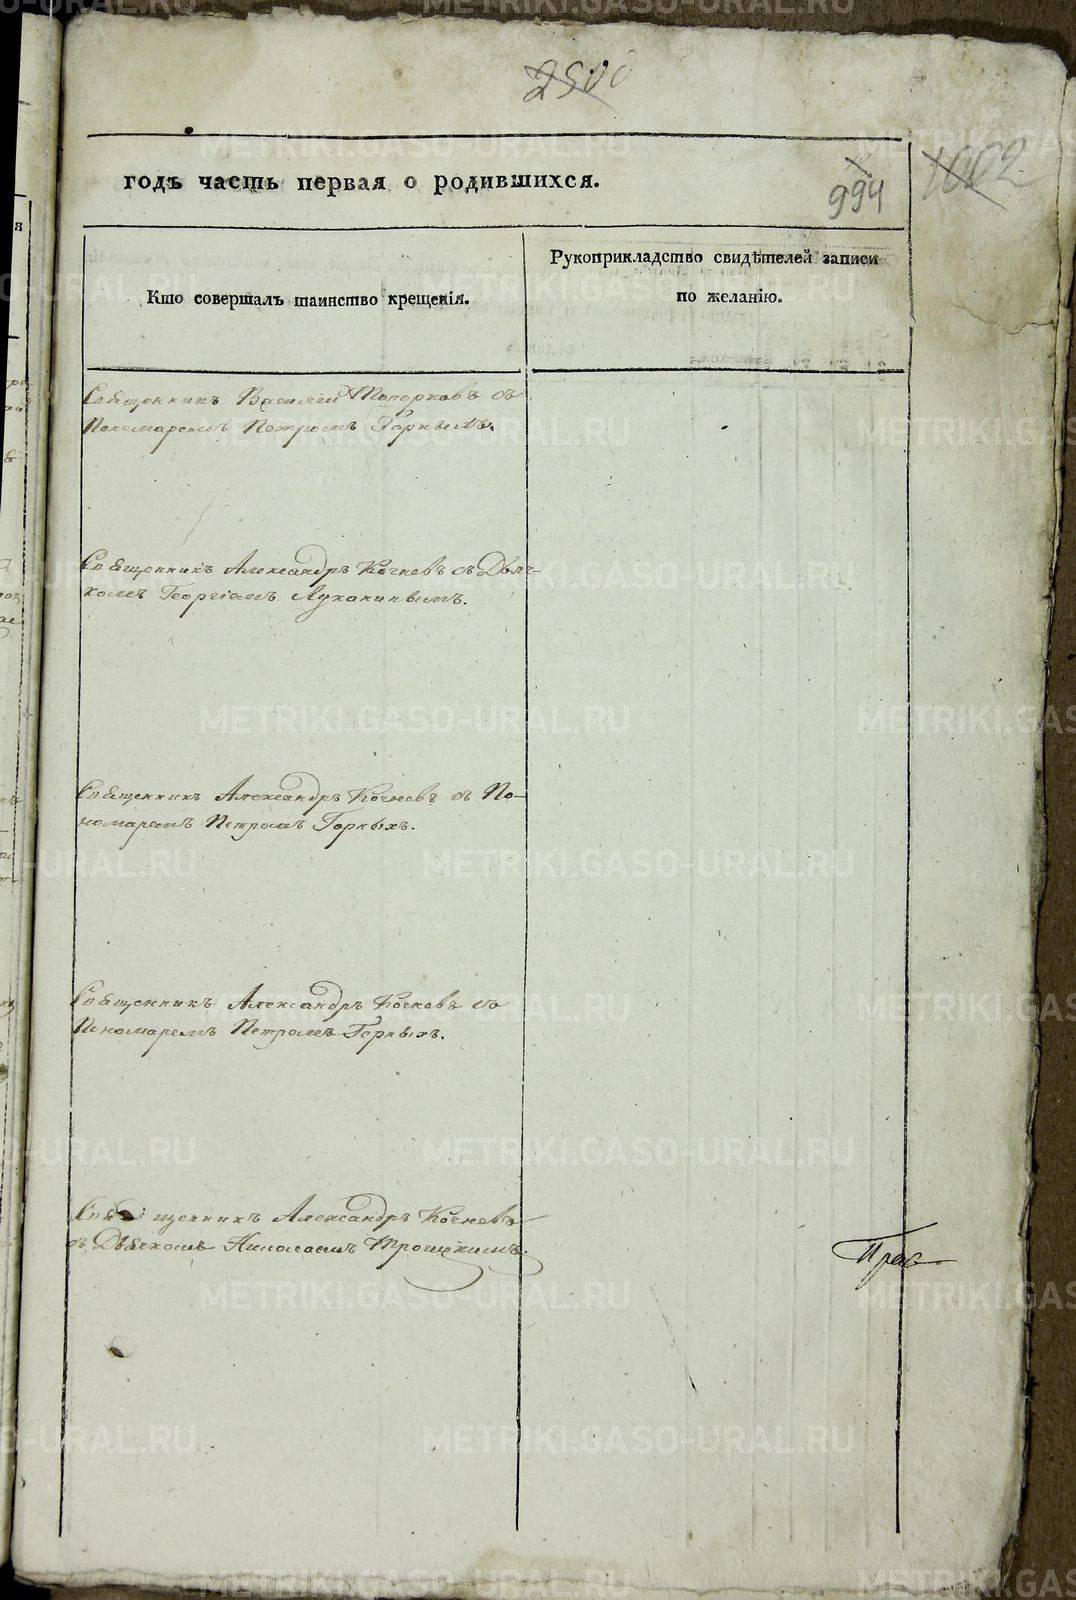 2500
994
1002
годъ часть первая о родившихся.
Кто совершалъ таинство крещенія.
Рукоприкладство свидѣтелей записи
по желанію.
Священникъ Василій Топорковъ съ
Пономаремъ Петромъ Горныхъ.
Священникъ Александръ Кочневъ съ Дьяч-
комъ Георгіемъ Луканинымъ.
Священникъ Александръ Кочневъ съ По-
номаремъ Петромъ Горныхъ.
Священникъ Александръ Кочневъ съ
Пономаремъ Петромъ Горныхъ.
Священникъ Александръ Кочневъ
съ Дьячкомъ Николаемъ Троицкимъ.
METRIKI.GASO-URAL.RU